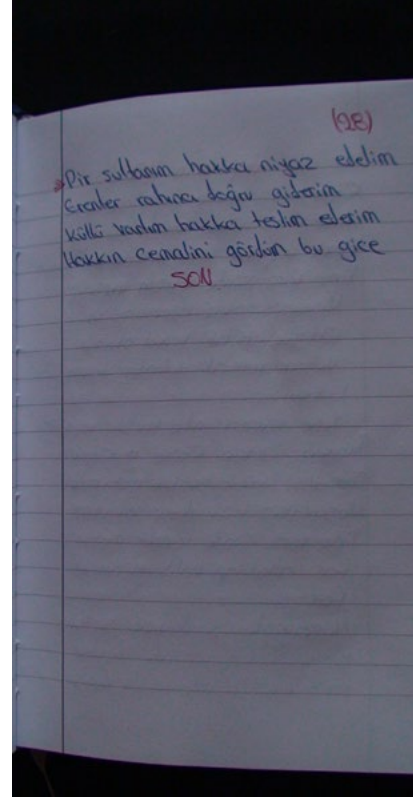 (28)
Pir sultanım hakka niyaz edelim
Erenler rahına doğru giderim
Küllü varlım hakka teslim ederim
Hakkın cemalini gördüm bu gice
SON